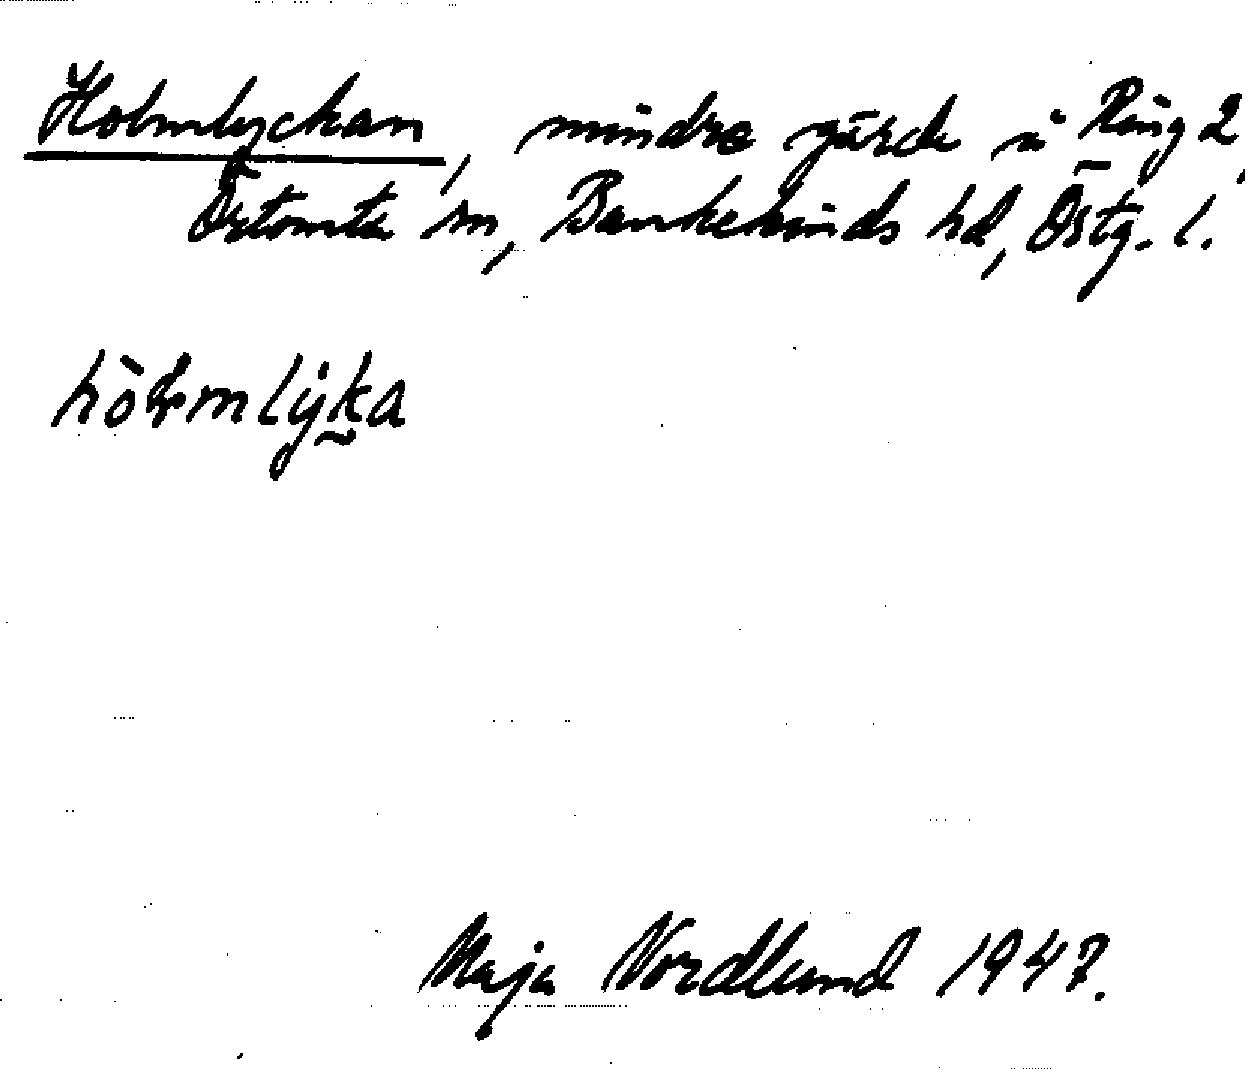 Holmlyckan, mindre gärde i Ring 2,
Östomta sn, Bankekinds hd, Östg. l.
Maja Nordlund 1947.